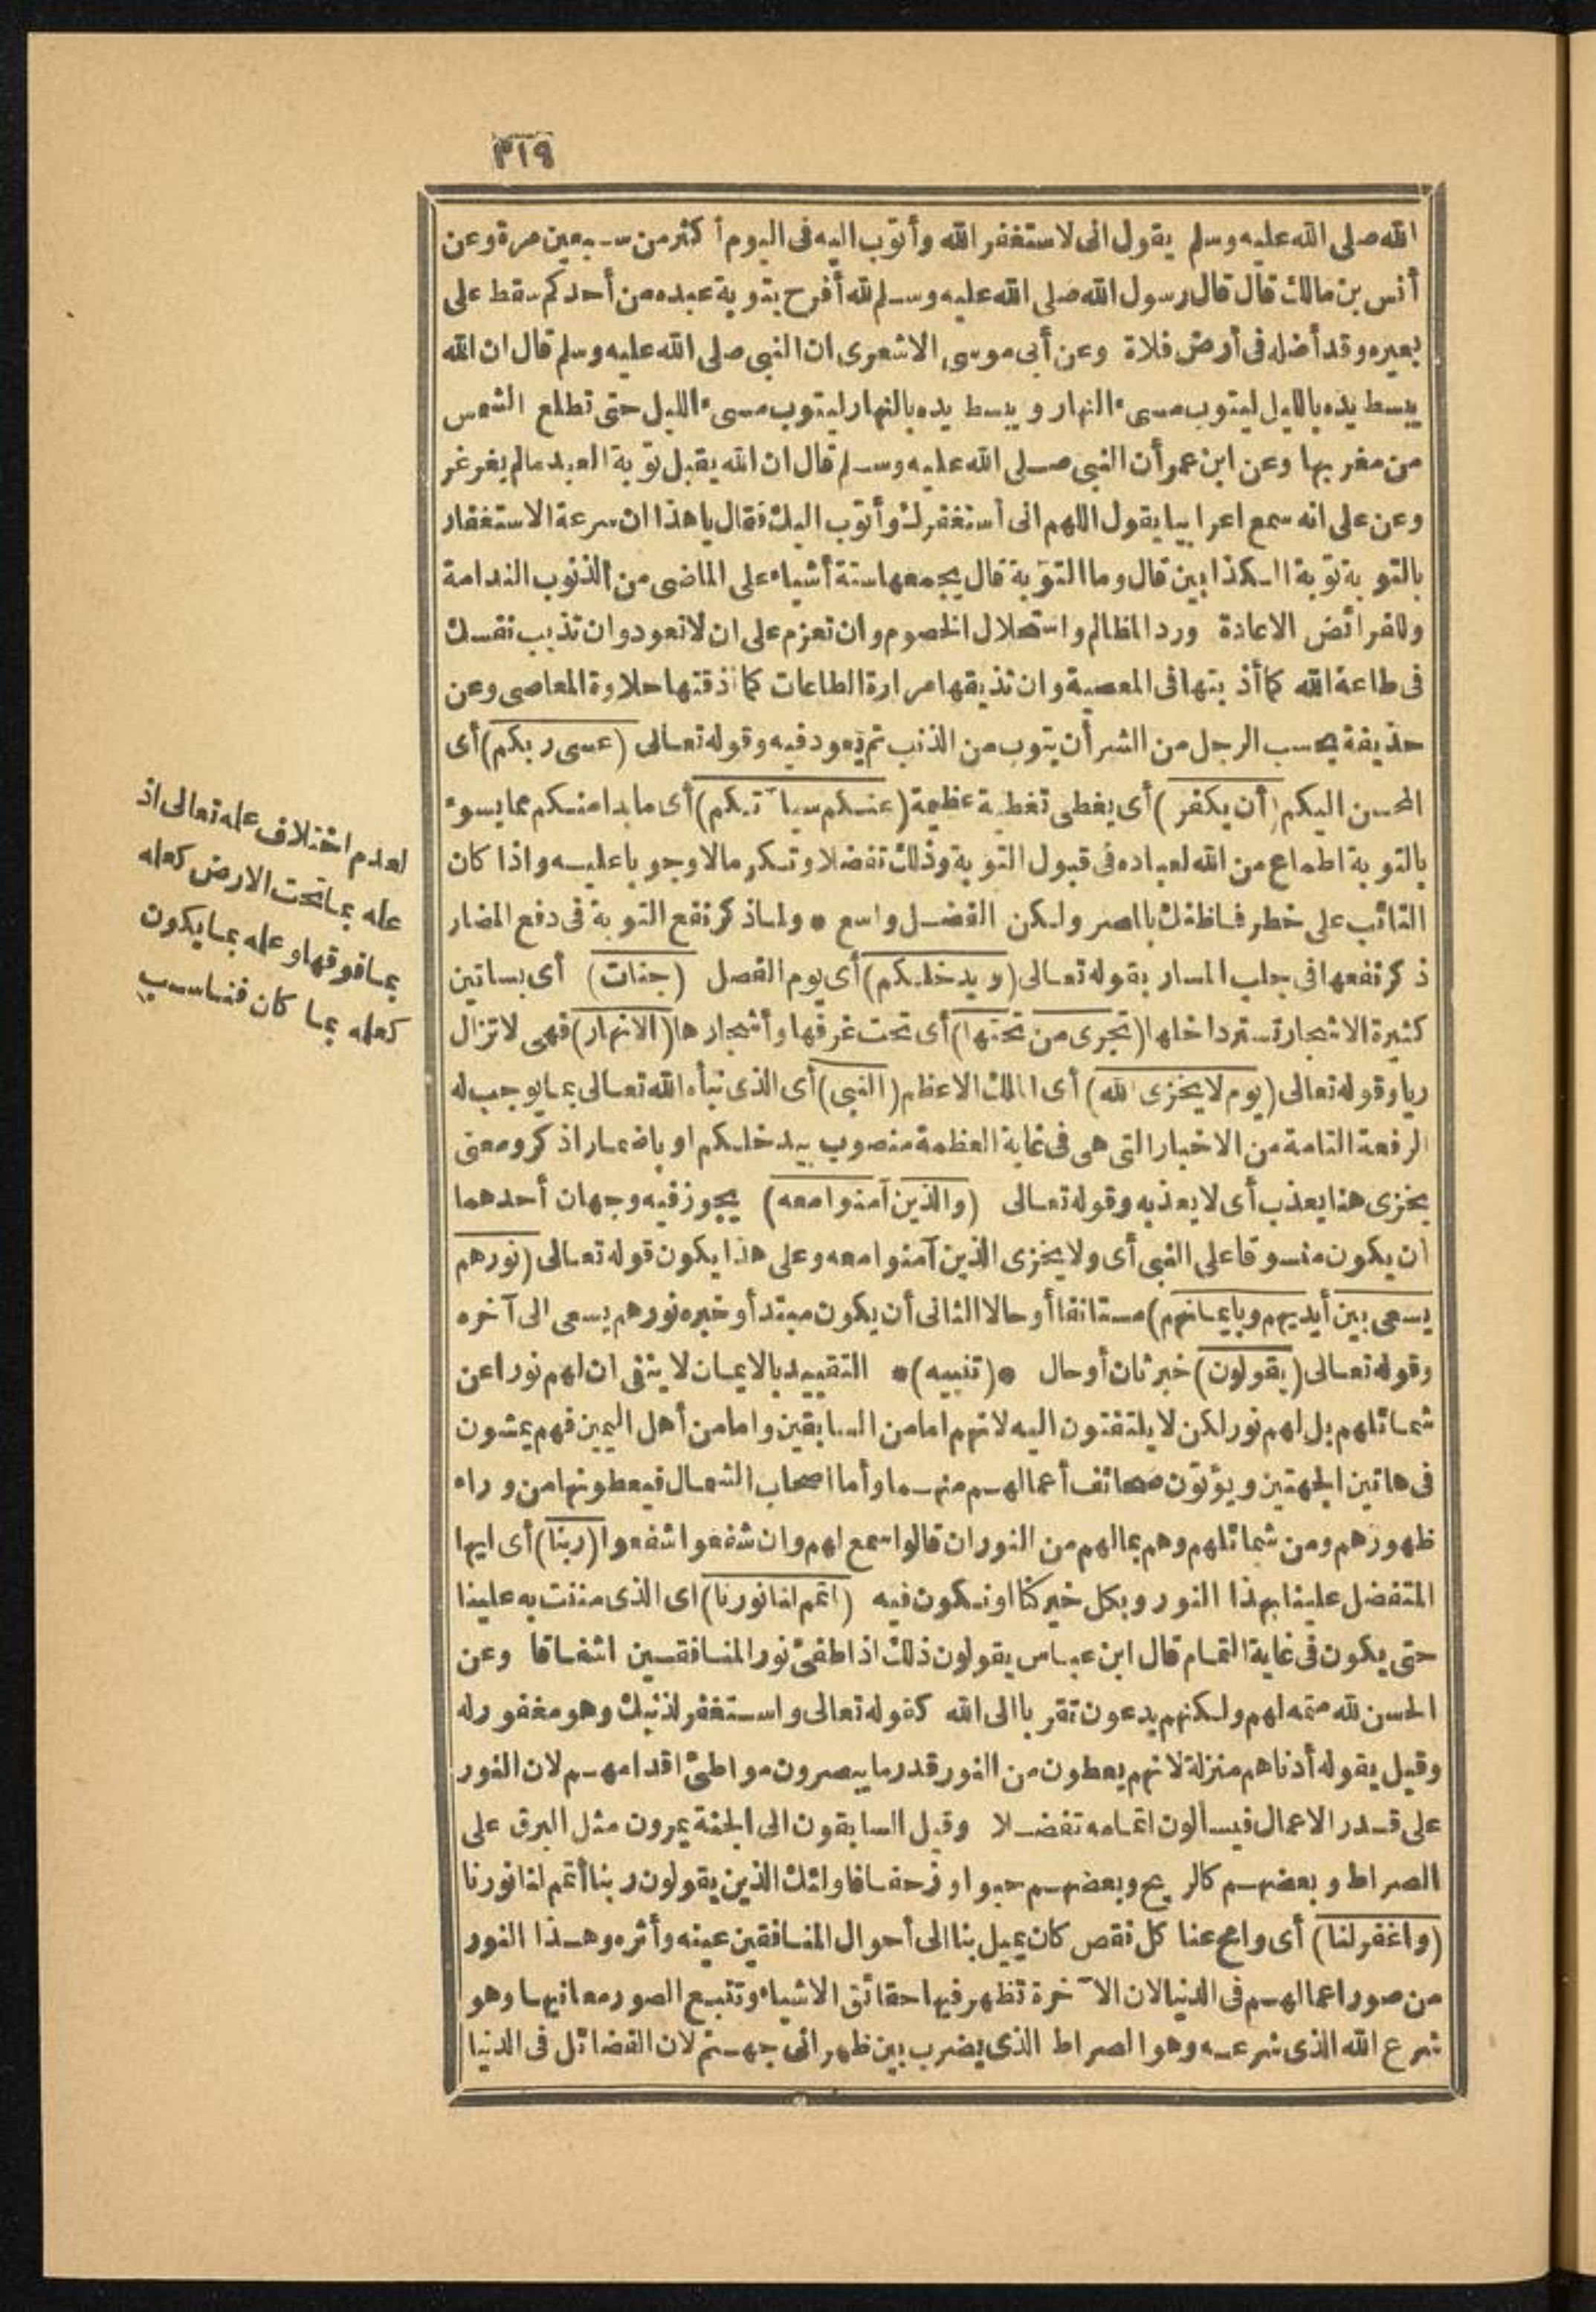 ٣١٩
الله صلى الله عليه وسلم يقول انى لاستغفر الله وأتوب اليه فى اليوم أكثر من سبعين مرة وعن
أنس بن مالك قال قال رسول الله صلى الله عليه وسلم لله أفرح بتوبة عبده من أحدكم سقط على
بعيره وقد أضله فى أرض فلاة وعن أبى موسى الاشعرى ان النبى صلى الله عليه وسلم قال ان الله
يبسط يده بالليل ليتوب مسىء النهار ويبسط يده بالنهار ليتوب مسىء الليل حتى تطلع الشمس
من مغربها وعن ابن عمر أن النبى صلى الله عليه وسلم قال ان الله يقبل توبة العبد مالم يغرغر
وعن على انه سمع اعرابيا يقول اللهم انى أستغفرك وأتوب اليك فقال يا هذا ان سرعة الاستغفار
بالتوبة توبة الكذابين قال وما التوبة قال يجمعها ستة أشياء على الماضى من الذنوب الندامة
وللفرائض الاعادة ورد المظالم واستحلال الخصوم وان تعزم على ان لا تعود وان تذيب نفسك
فى طاعة الله كما أذبتها فى المعصية وان تذيقها مرارة الطاعات كما أذقتها حلاوة المعاصى وعن
حذيفة بحسب الرجل من الشر أن يتوب من الذنب ثم يعود فيه وقوله تعالى (عسى ربكم) أى
المحسن اليكم (أن يكفر) أى يغطى تغطية عظيمة (عنكم سيآتكم) أى ما بدا منكم مما يسوء
بالتوبة اطماع من الله لعباده فى قبول التوبة وذلك تفضلا وتكرما لا وجوبا عليه واذا كان
التائب على خطر فما ظنك بالمصر ولكن الفضل واسع * ولما ذكر نفع التوبة فى دفع المضار
ذكر نفعها فى جلب المسار بقوله تعالى (ويدخلكم) أى يوم الفصل (جنات) أى بساتين
كثيرة الاشجار تستر داخلها (تجرى من تحتها) أى تحت غرفها وأشجارها (الانهار) فهى لا تزال
ريا وقوله تعالى (يوم لا يخزى الله) أى الملك الاعظم (النبى) أى الذى نبأه الله تعالى بما يوجب له
الرفعة التامة من الاخبار التى هى فى غاية العظمة منصوب بيدخلكم او باضمار اذكر ومعنى
يخزى هنا يعذب أى لا يعذبه وقوله تعالى (والذين آمنوا معه) يجوز فيه وجهان أحدهما
ان يكون منسوقا على النبى أى ولا يخزى الذين آمنوا معه وعلى هذا يكون قوله تعالى (نورهم
يسعى بين أيديهم وبايمانهم) مستانفا أو حالا الثانى أن يكون مبتدأ وخبره نورهم يسعى الى آخره
وقوله تعالى (يقولون) خبر ثان أو حال *(تنبيه)* التقييد بالايمان لا ينفى ان لهم نورا عن
شمائلهم بل لهم نور لكن لا يلتفتون اليه لانهم امامن السابقين وامامن أهل اليمين فهم يمشون
فى هاتين الجهتين ويؤتون صحائف أعمالهم منهما وأما اصحاب الشمال فيعطونها من وراء
ظهورهم ومن شمائلهم وهم بمالهم من النور ان قالوا سمع لهم وان شفعوا شفعوا (ربنا) أى ايها
المتفضل علينا بهذا النور وبكل خير كنا او نكون فيه (اتمم لنا نورنا) اى الذى مننت به علينا
حتى يكون فى غاية التمام قال ابن عباس يقولون ذلك اذا طفئ نور المنافقين اشفاقا وعن
الحسن لله متمه لهم ولكنهم يدعون تقربا الى الله كقوله تعالى واستغفر لذنبك وهو مغفور له
وقيل يقوله أدناهم منزلة لانهم يعطون من النور قدر ما يبصرون مواطئ اقدامهم لان النور
على قدر الاعمال فيسألون اتمامه تفضلا وقيل السابقون الى الجنة يمرون مثل البرق على
الصراط وبعضهم كالريح وبعضهم حبوا وزحفا فاولئك الذين يقولون ربنا أتمم لنا نورنا
(واغفر لنا) أى وامح عنا كل نقص كان يميل بنا الى أحوال المنافقين عينه وأثره وهذا النور
من صور اعمالهم فى الدنيا لان الآخرة تظهر فيها حقائق الاشياء وتتبع الصور معانيها وهو
شرع الله الذى شرعه وهو الصراط الذى يضرب بين ظهرانى جهنم لان الفضائل فى الدنيا
لعدم اختلاف علمه تعالى اذ
علمه بما تحت الارض كعلمه
بما فوقها وعلمه بما يكون
كعلمه بما كان فناسب